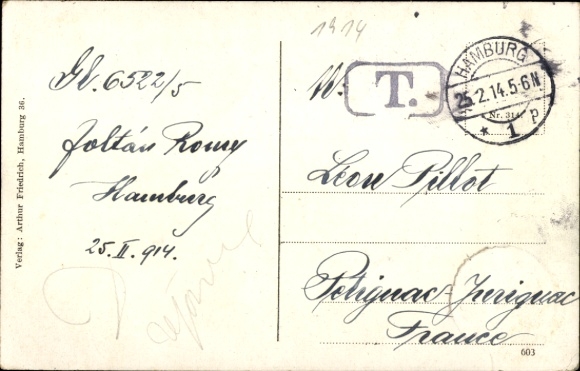 Gl. 6522/5
Zoltán Rony
Hamburg
25. II. 914.
Verlag: Arthur Friedrich, Hamburg 36.
1914
T.
HAMBURG
25.2.14.5-6N
* 1 P
Nr. 314
M.
Léon Pillot
Polignac-Jurignac
France
603